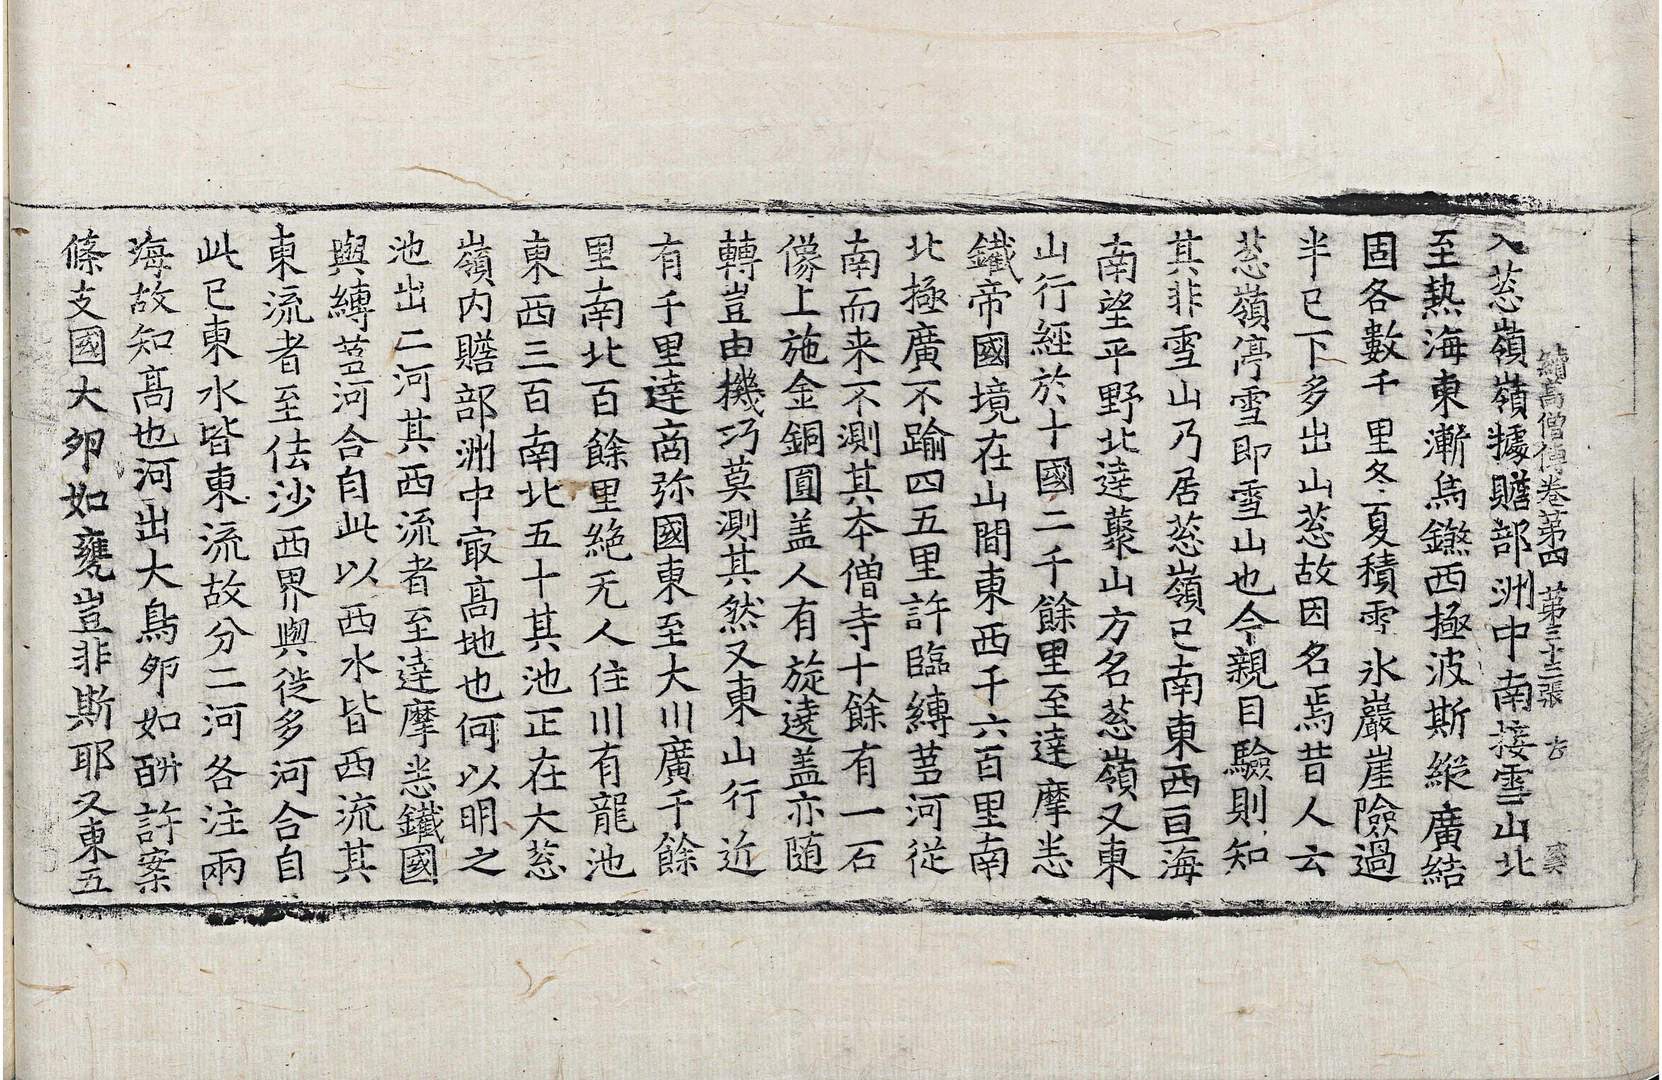 續高僧傳卷第四　第三十三張　右
入葱嶺嶺據贍部洲中南接雪山北
至熱海東漸烏鎩西極波斯縱廣結
固各數千里冬夏積雪氷巖崖險過
半已下多出山葱故因名焉昔人云
葱嶺停雪即雪山也今親目驗則知
其非雪山乃居葱嶺已南東西亘海
南望平野北達藂山方名葱嶺又東
山行經於十國二千餘里至達摩悉
鐵帝國境在山間東西千六百里南
北極廣不踰四五里許臨縛芻河從
南而来不測其夲僧寺十餘有一石
像上施金銅圓盖人有旋遶盖亦随
轉豈由機巧莫測其然又東山行近
有千里達商弥國東至大川廣千餘
里南北百餘里絶无人住川有龍池
東西三百南北五十其池正在大葱
嶺内贍部洲中㝡髙地也何以明之
池出二河其西流者至達摩悉鐵國
與縛芻河合自此以西水皆西流其
東流者至佉沙西界與徙多河合自
此已東水皆東流故分二河各注兩
海故知髙也河出大鳥夘如𤭁許案
條支國大夘如甕豈非斯耶又東五